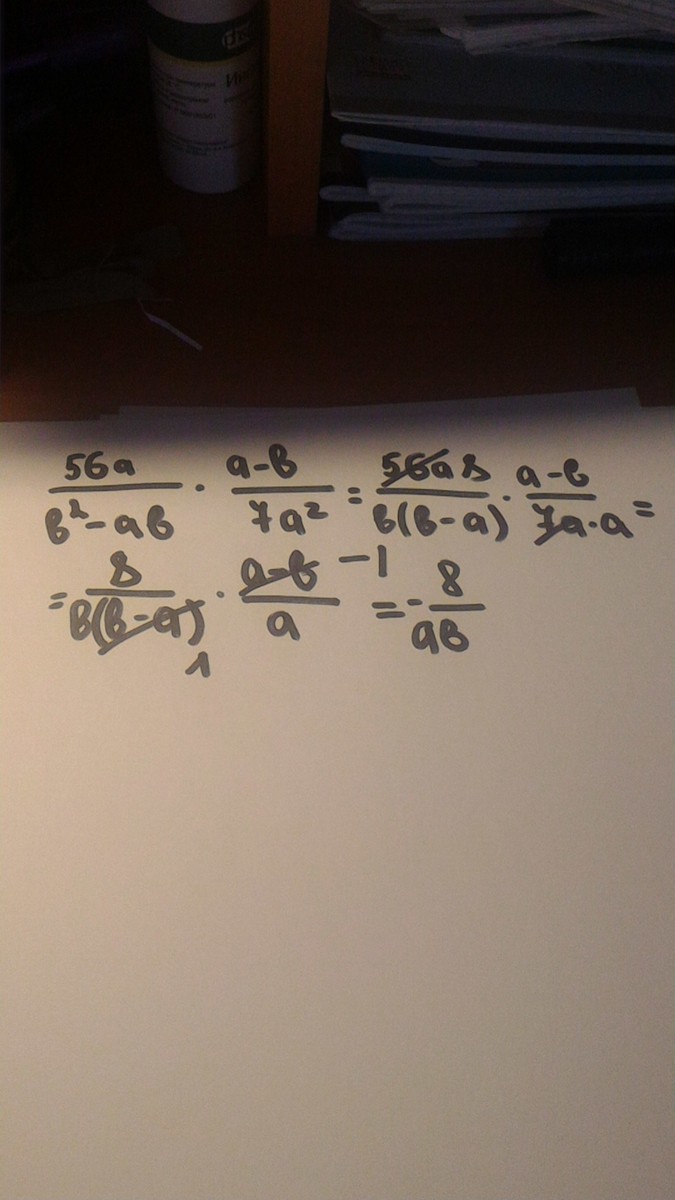 56a / в² - aв · a-в / 7a² = 56a 8 / в(в-a) · a-в / 7a·a =
= 8 / в(в-a) 1 · a-в -1 / a = - 8 / aв